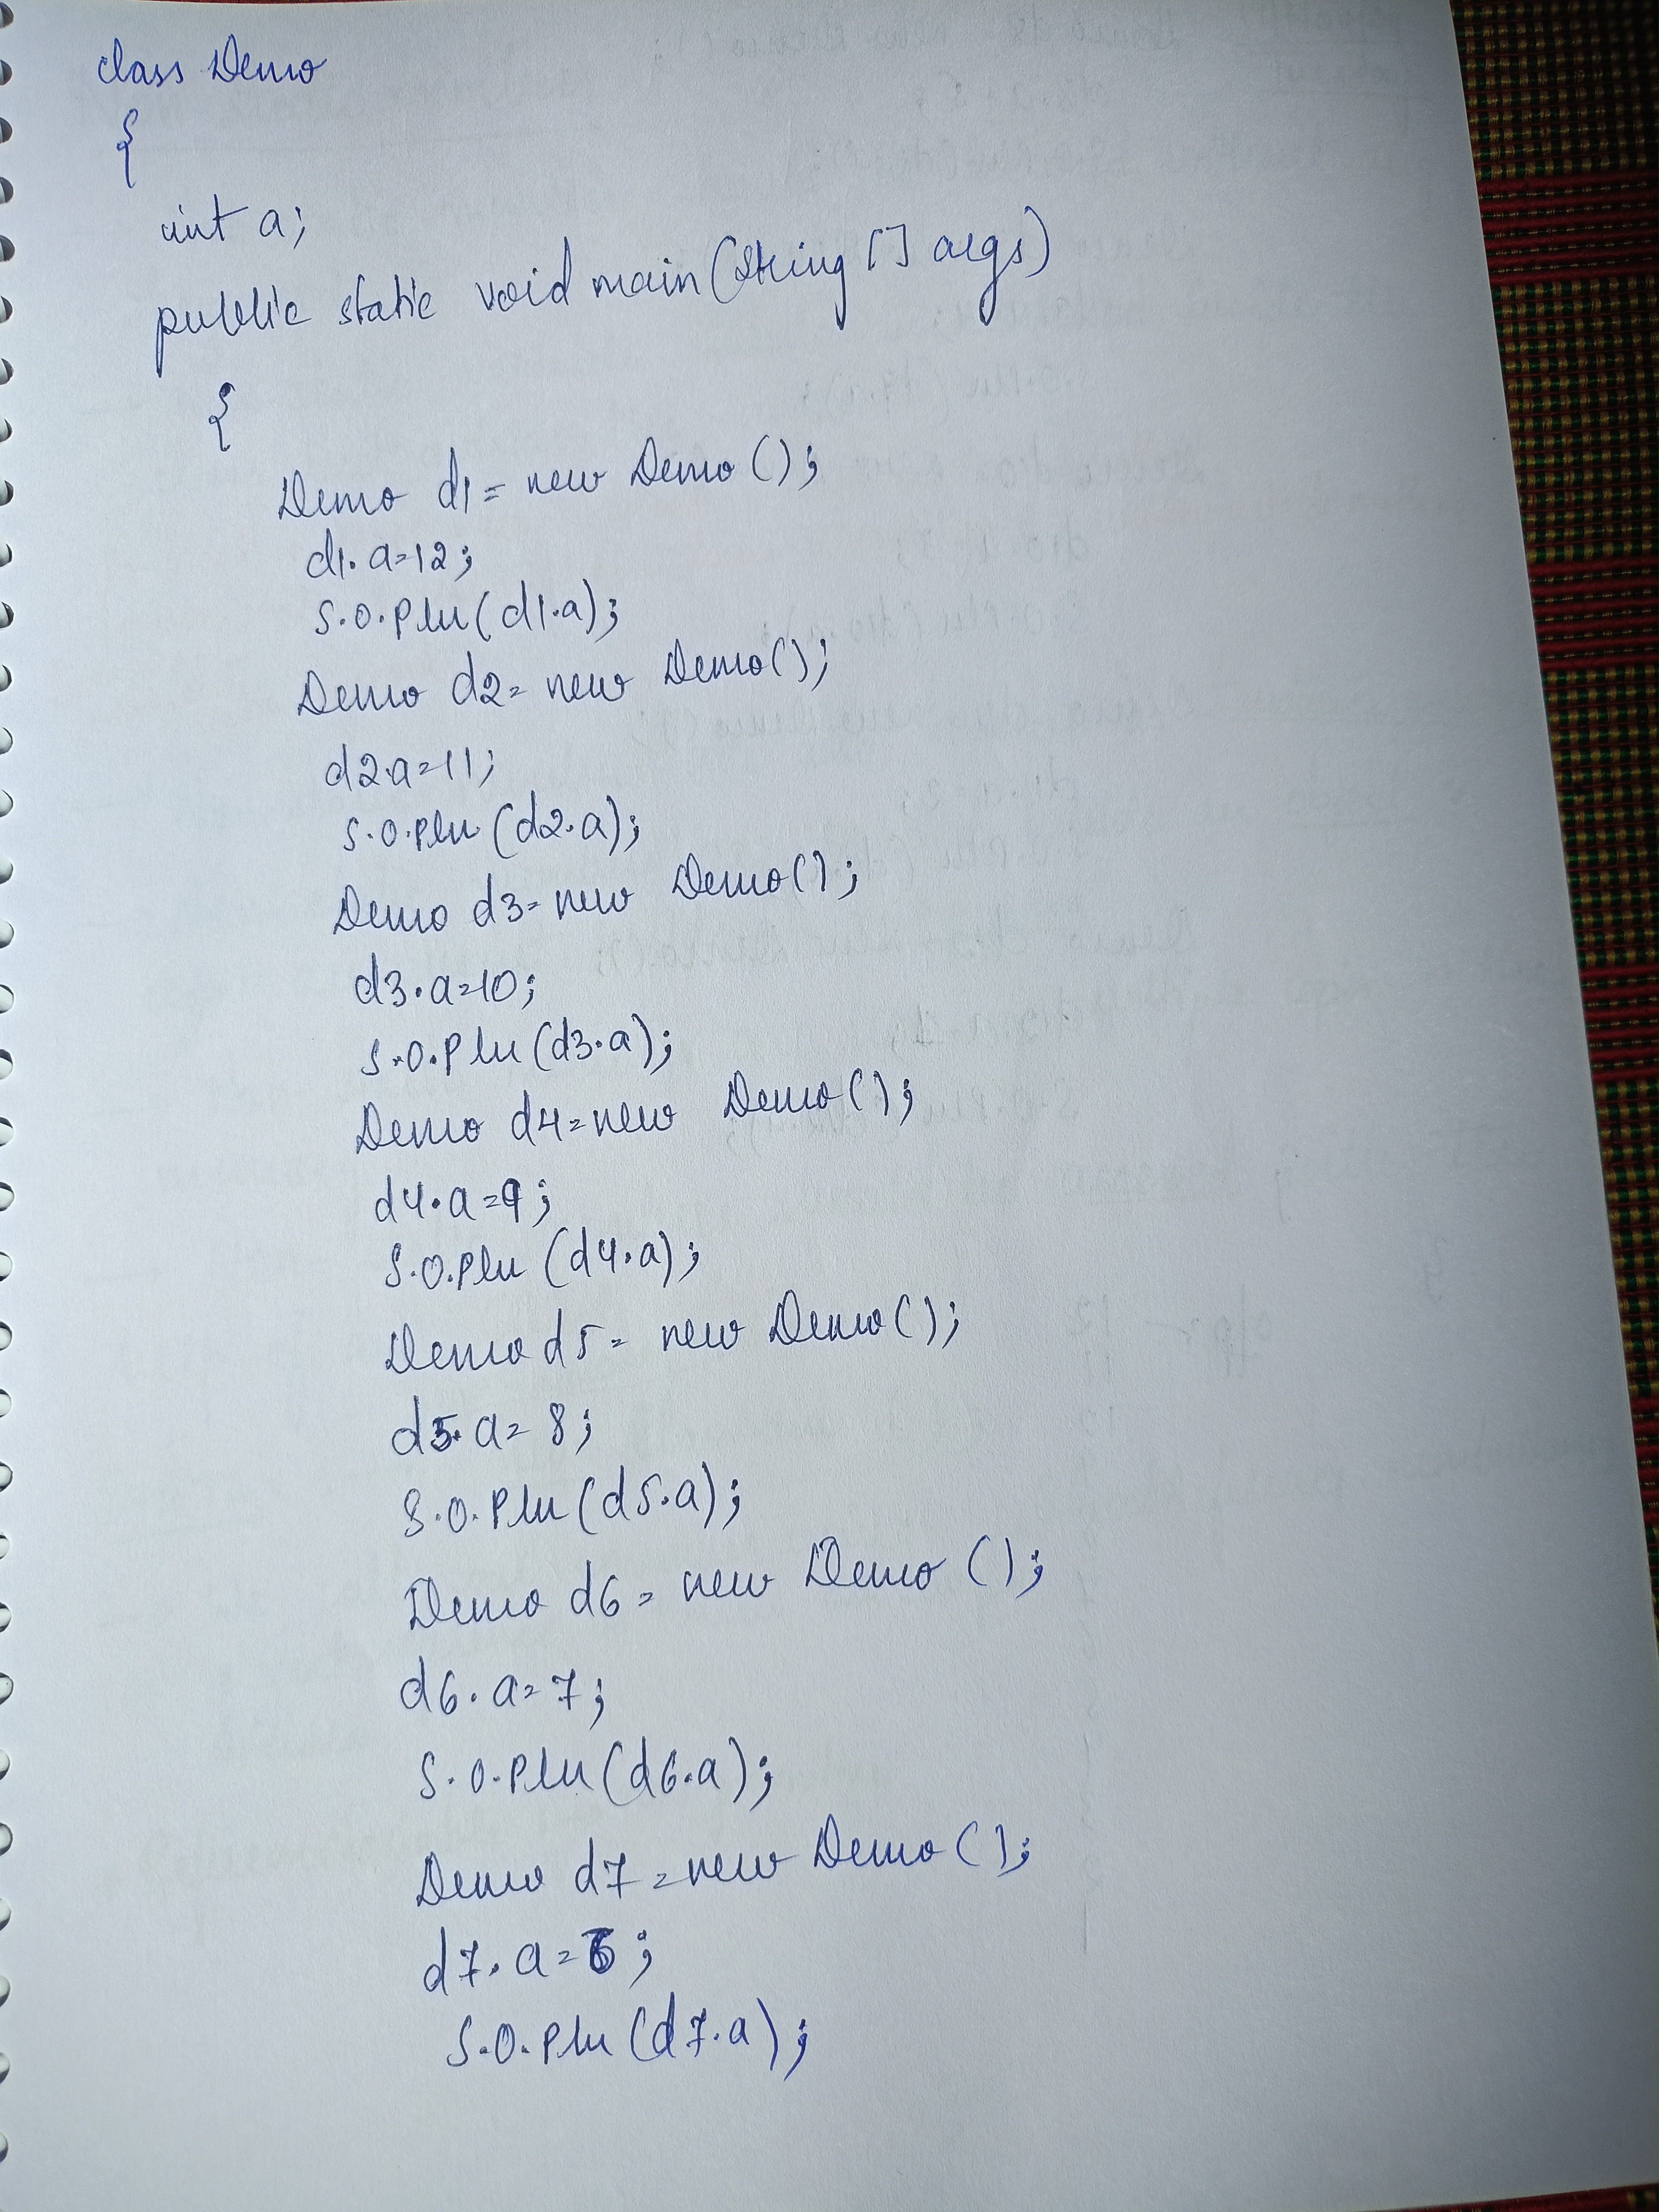 class Demo
{
int a;
public static void main(String [] args)
{
Demo d1 = new Demo();
d1.a=12;
S.O.Pln(d1.a);
Demo d2= new Demo();
d2.a=11;
S.O.Pln(d2.a);
Demo d3= new Demo();
d3.a=10;
S.O.Pln(d3.a);
Demo d4=new Demo();
d4.a=9;
S.O.Pln(d4.a);
Demo d5= new Demo();
d5.a=8;
S.O.Pln(d5.a);
Demo d6= new Demo();
d6.a=7;
S.O.Pln(d6.a);
Demo d7=new Demo();
d7.a=6;
S.O.Pln(d7.a);